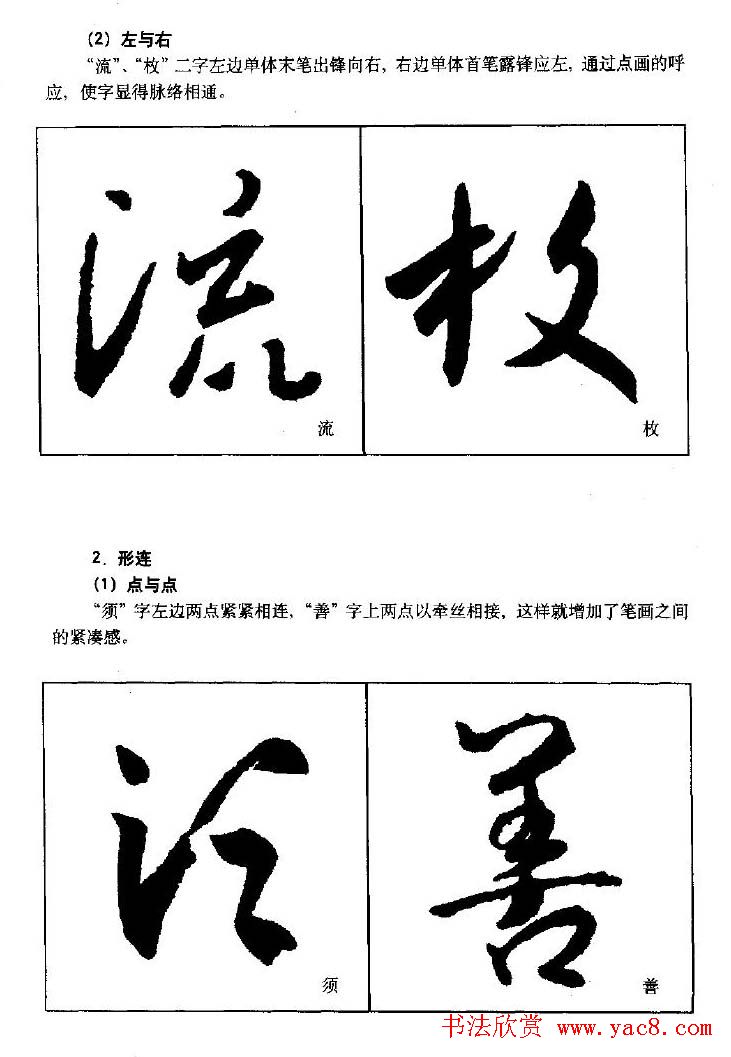 (2) 左与右
“流”、“枚”二字左边单体末笔出锋向右，右边单体首笔露锋应左，通过点画的呼
应，使字显得脉络相通。
流 枚
流 枚
2．形连
(1) 点与点
“须”字左边两点紧紧相连，“善”字上两点以牵丝相接，这样就增加了笔画之间
的紧凑感。
须 善
须 善
书法欣赏 www.yac8.com